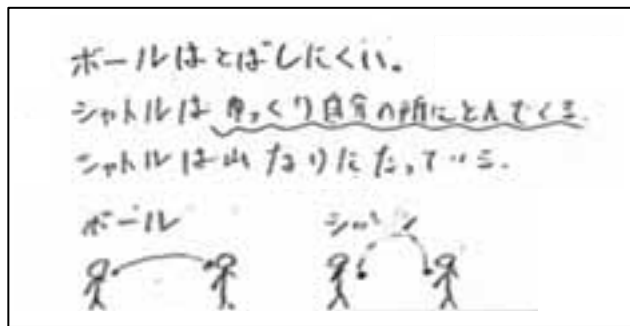 ボールはとばしにくい。
シャトルはゆっくり自分の所にとんでくる.
シャトルは山なりになっている.
ボール
シャトル